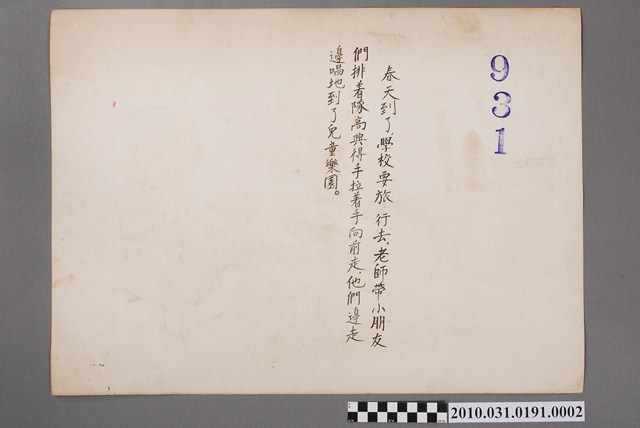 春天到了,學校要旅行去,老師帶小朋友
們排着隊高興得手拉着手向前走,他們邊走
邊唱地到了兒童樂園。
931
2010.031.0191.0002